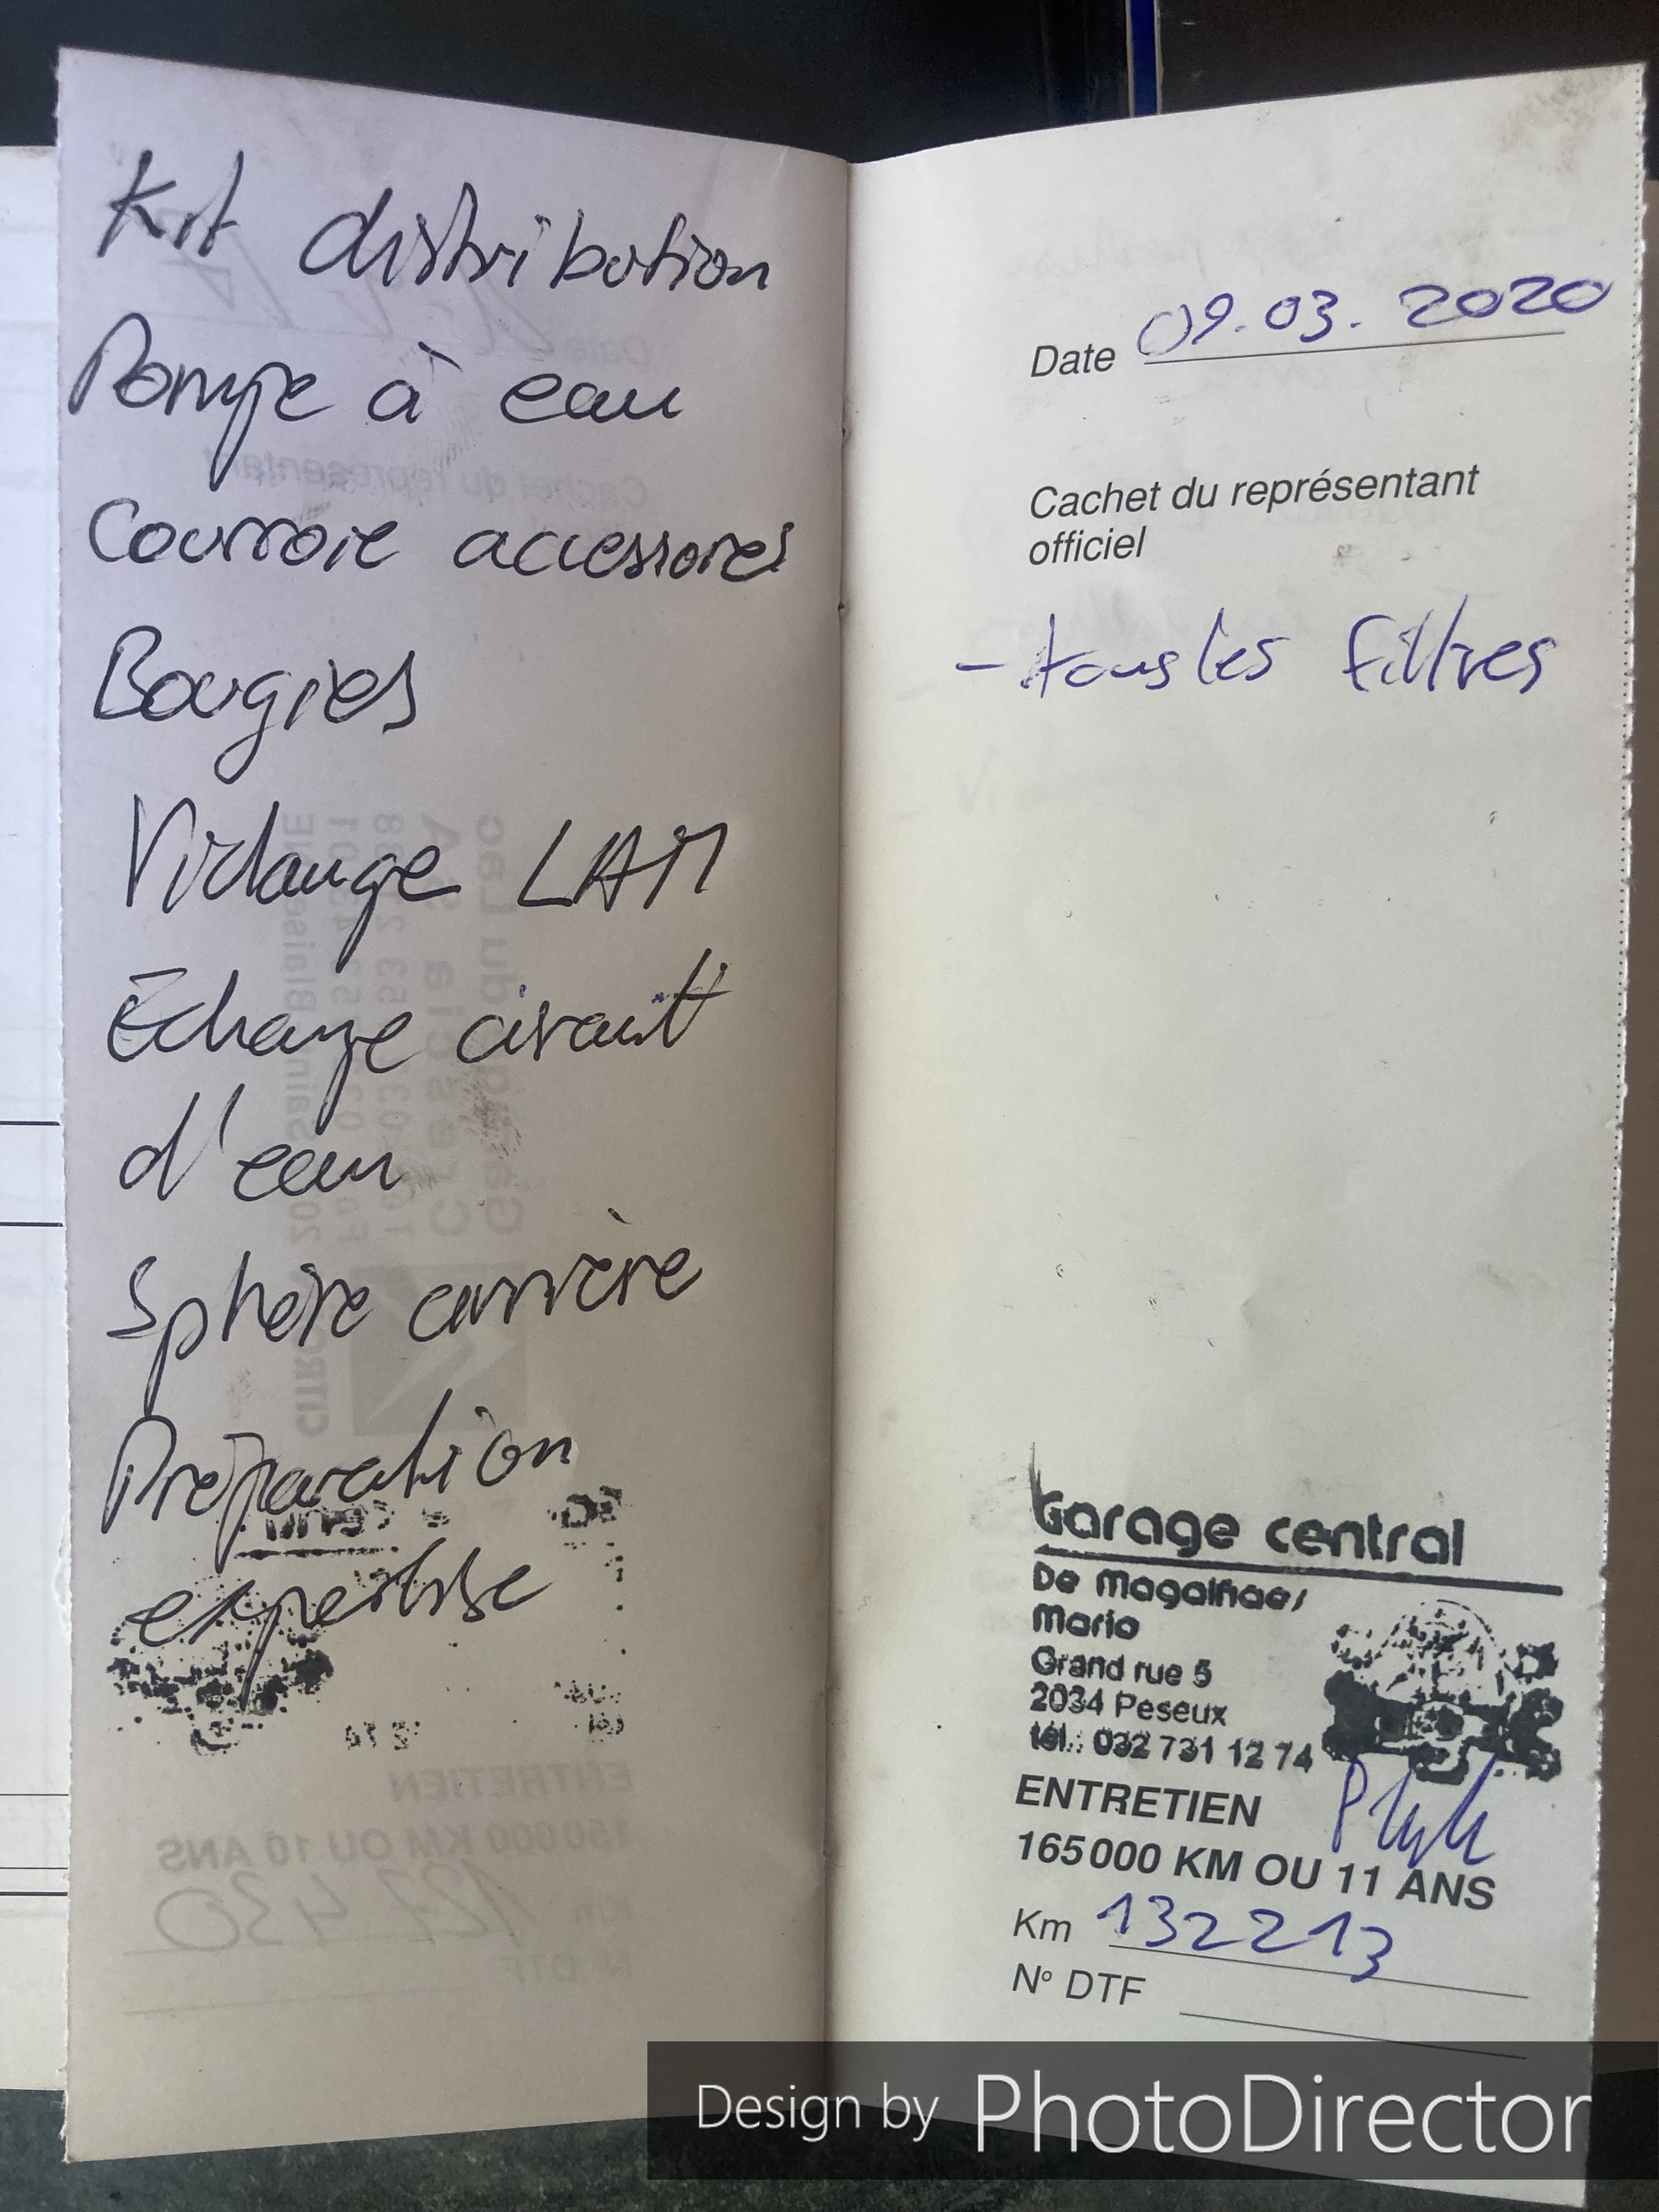 Kit distribution
Pompe à eau
Courroie accessoires
Bougies
Vidange LAM
Échange circuit
d'eau
Sphère arrière
Préparation
expertise
Date 09.03.2020
Cachet du représentant
officiel
- tous les filtres
Garage central
De Magalhaes
Mario
Grand rue 5
2034 Peseux
tél.: 032 731 12 74
ENTRETIEN
165000 KM OU 11 ANS
Km 132213
N° DTF
Design by PhotoDirector